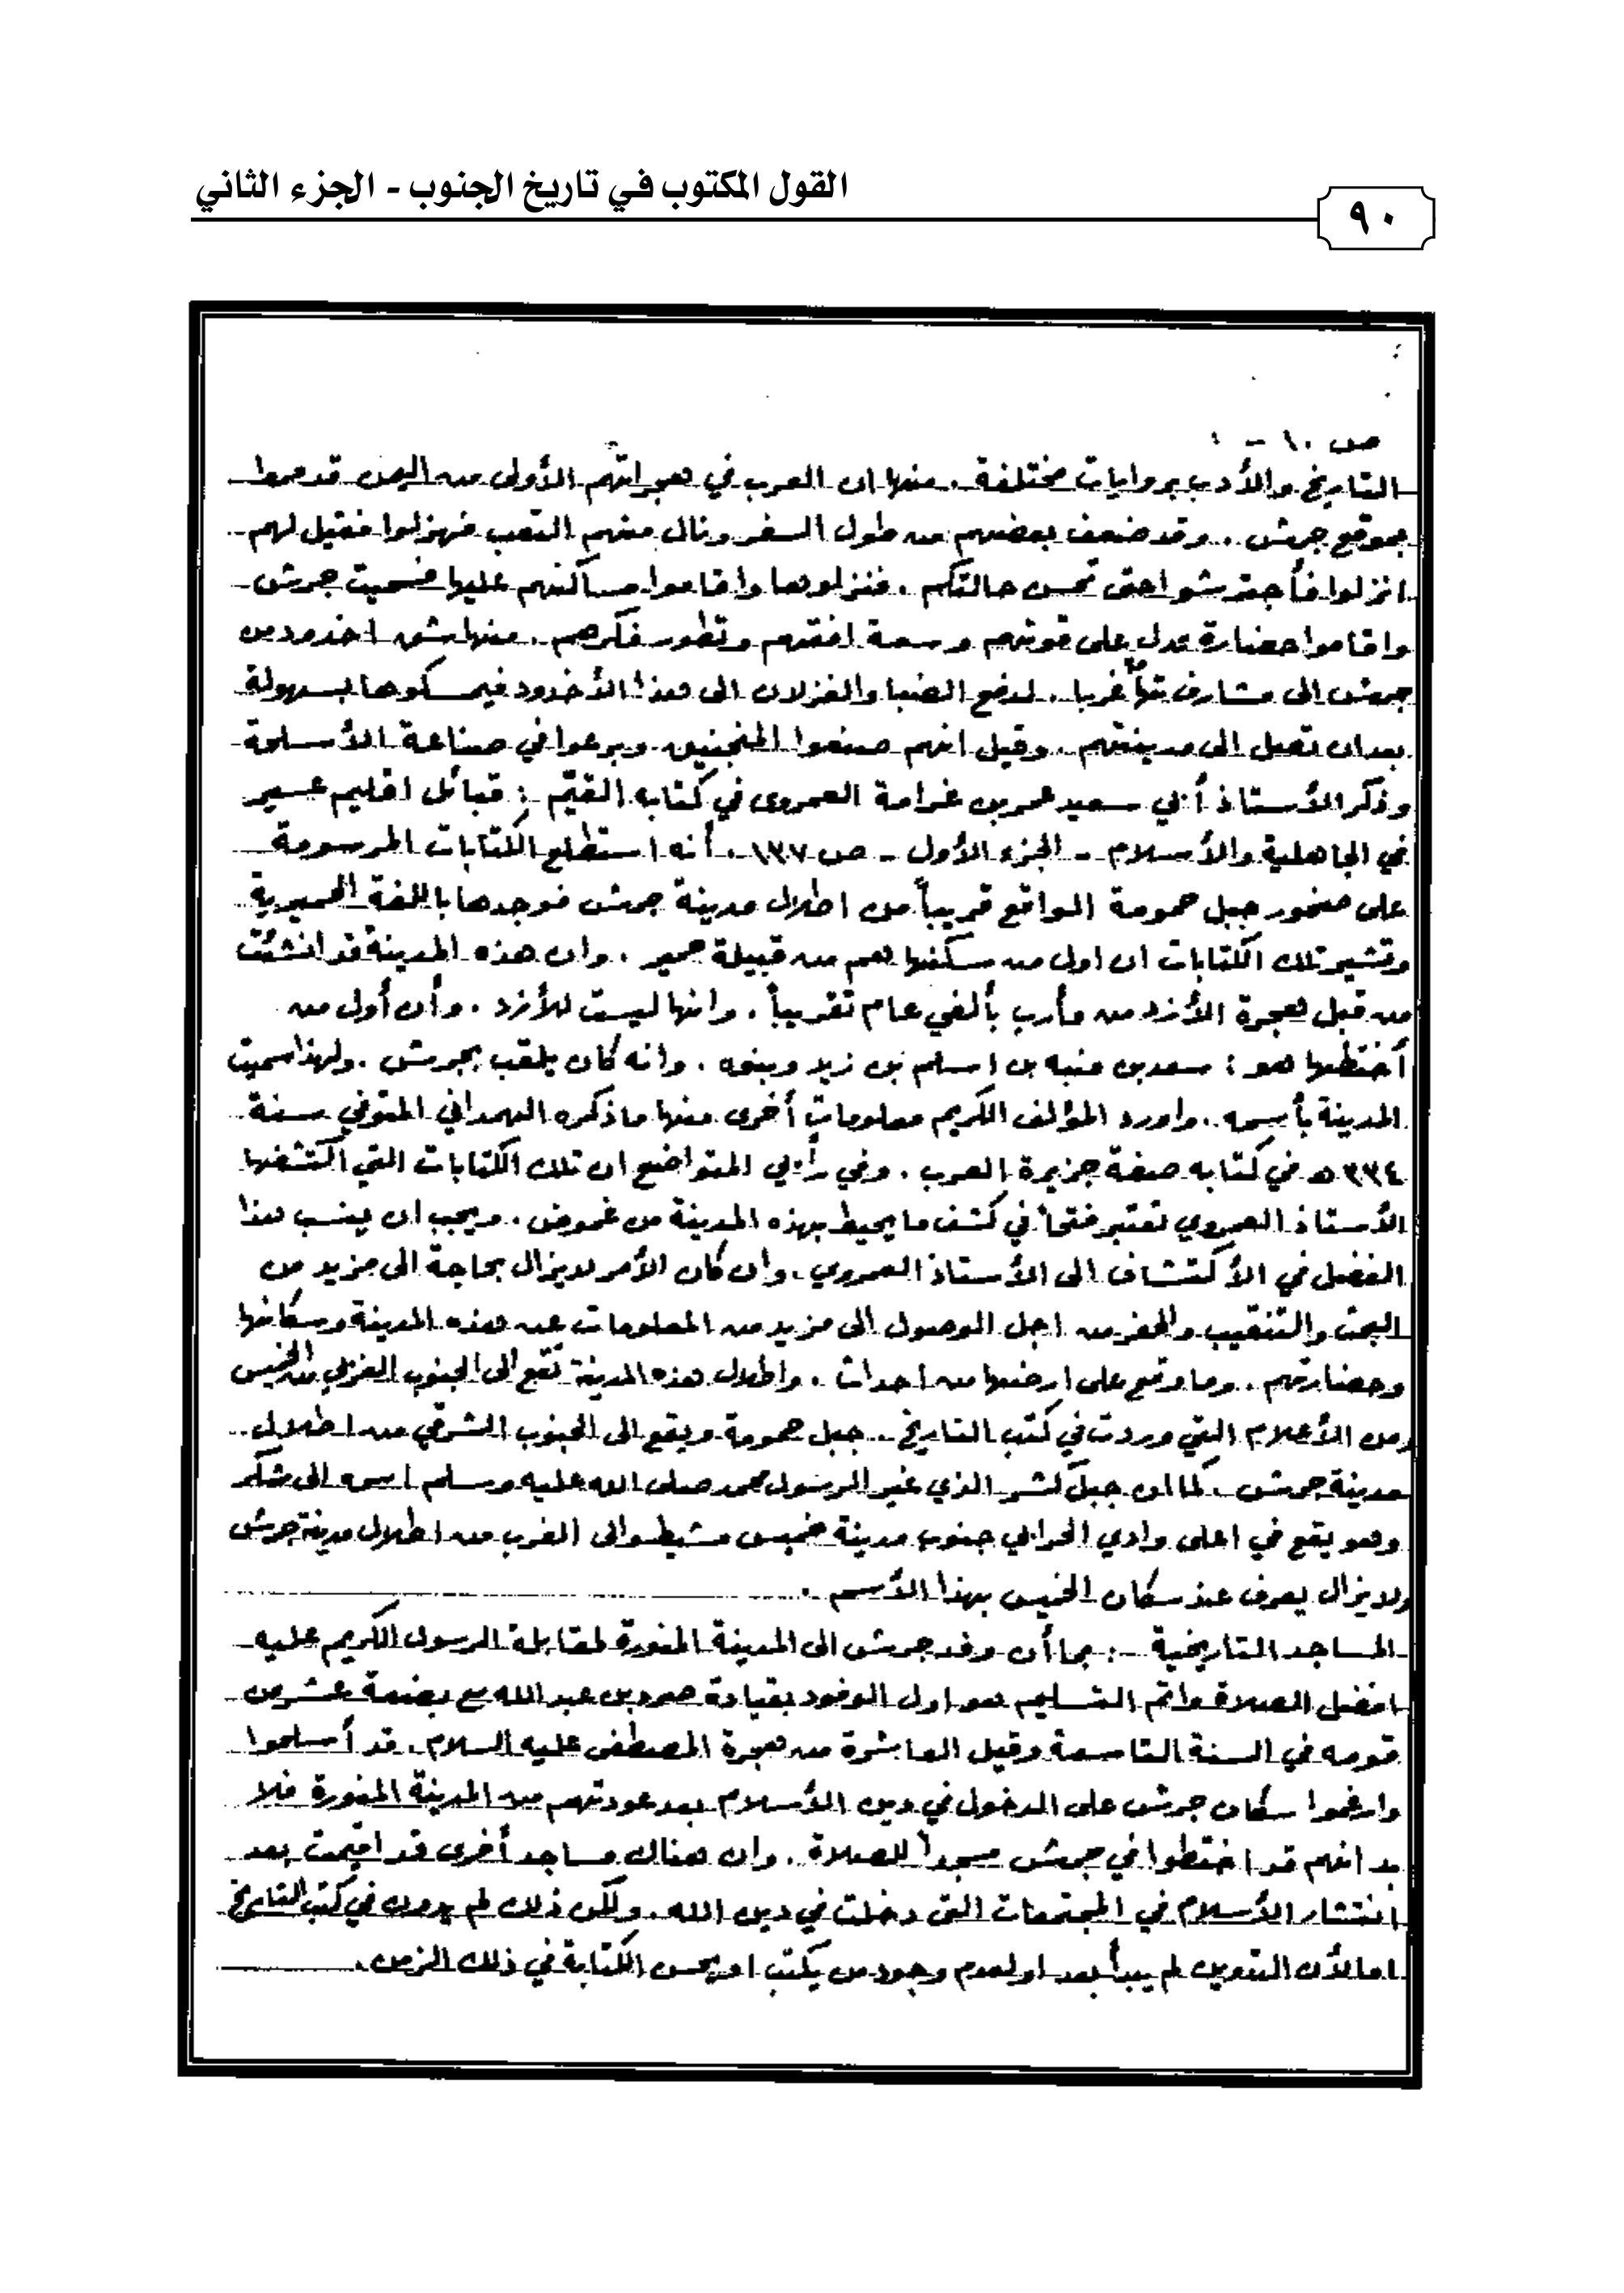 القول المكتوب في تاريخ الجنوب - الجزء الثاني
٩٠
ص ١٠ -
التاريخ والأدب بروايات مختلفة . منها ان العرب في هجراتهم الأولى من اليمن قد مروا
بموقع جرش .. وقد ضعف بعضهم من طول السفر ونال منهم التعب فهزلوا فقيل لهم
انزلوا فأجترشوا حتى تحسن حالتكم . فنزلوها واقاموا مساكنهم عليها فسميت جرش
واقاموا حضارة تدل على قوتهم وسعة افقهم وتطور فكرهم . منها شق اخدود من
جرش الى مشارف غربا . لدفع الضبا والغزلان الى هذا الأخدود فيمسكوها بسهولة
بعد ان تصل الى مدينتهم . وقيل انهم صنعوا المنجنيق وبرعوا في صناعة الأسلحة
وذكر الأستاذ أبي سعيد عمر بن غرامة العمروى في كتابه القيّم : قبائل اقليم عسير
في الجاهلية والأسلام - الجزء الأول - ص ١٣٧ . أنه استطلع الكتابات المرسومة
على صخور جبل حمومة الواقع قريباً من اطلال مدينة جرش فوجدها باللغة الحميرية
وتشير تلك الكتابات ان اول من سكنها هم من قبيلة حمير . وان هذه المدينة قد انشئت
من قبل هجرة الأزد من مأرب بألفي عام تقريباً . وانها ليست للأزد . وأن أول من
أختطها هو : سعد بن منبه بن اسلم بن زيد وبنوه . وانه كان يلقب بجرش . ولهذا سميت
المدينة بأسمه . واورد المؤلف الكريم معلومات أخرى منها ما ذكره الهمداني المتوفي سنة
٣٣٤ هـ في كتابه صفة جزيرة العرب . وفي رأيي المتواضع ان تلك الكتابات التي اكتشفها
الأستاذ العمروي تعتبر فتحاً في كشف ما يحيط بهذه المدينة من غموض . ويجب ان ينسب هذا
الفضل في الأكتشاف الى الأستاذ العمروي . وان كان الأمر لا يزال بحاجة الى مزيد من
البحث والتنقيب والحفر من اجل الوصول الى مزيد من المعلومات عن هذه المدينة وسكانها
وحضارتهم . وما وقع على ارضها من احداث . واطلال هذه المدينة تقع الى الجنوب الغربي من الخميس
ومن الأعلام التي وردت في كتب التاريخ .. جبل حمومة ويقع الى الجنوب الشرقي من اطلال
مدينة جرش . كما ان جبل كشر الذي غير الرسول محمد صلى الله عليه وسلم اسمه الى شكر
وهو يقع في اعلى وادي جنوب مدينة خميس مشيط والى الغرب من اطلال مدينة جرش
ولا يزال يعرف عند سكان الخميس بهذا الأسم .
المساجد التاريخية -: بما أن وفد جرش الى المدينة المنورة لمقابلة الرسول الكريم عليه
افضل الصلاة واتم التسليم هو اول الوفود بقيادة صرد بن عبد الله مع بضعة عشر من
قومه في السنة التاسعة وقيل العاشرة من هجرة المصطفى عليه السلام . قد أسلموا
وارغموا سكان جرش على الدخول في دين الأسلام بعد عودتهم من المدينة المنورة فلا
بد انهم قد اختطوا في جرش مسجداً للصلاة . وان هناك مساجد أخرى قد اقيمت بعد
انتشار الأسلام في المجتمعات التى دخلت في دين الله . ولكن ذلك لم يدون في كتب التاريخ
اما لأن التدوين لم يبدأ بعد او لعدم وجود من يكتب او يحسن الكتابة في ذلك الزمن .